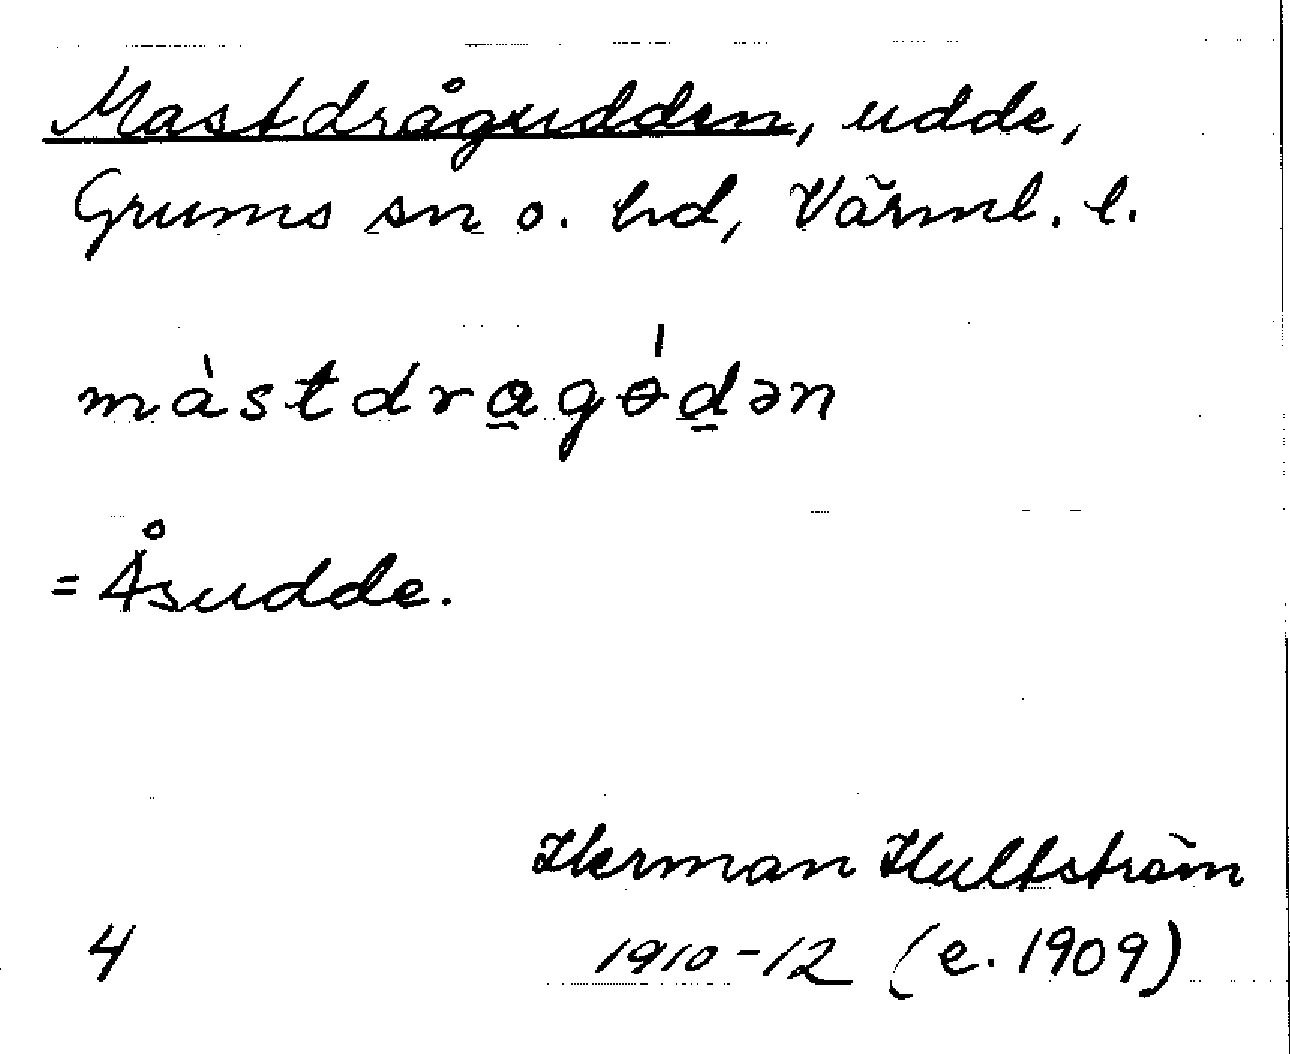 Mastdrågudden, udde,
Grums sn o. hd, Värml. l.
màstdra̲gɵ́d̲ən
= Åsudde.
Herman Hultström
4 1910-12 (e. 1909)